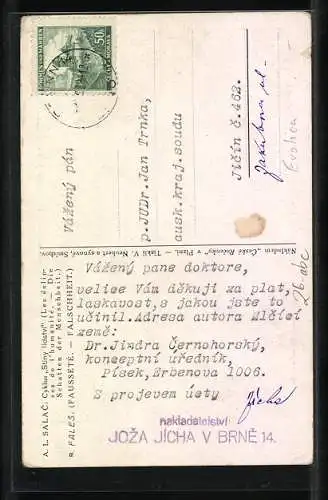 Vážený pán
p.JUDr.Jan Trnka,
ausk.kraj.soudu
Jičín č.462.
Nákladem "České Ročenky" v Plzni. — Tiskli V. Neubert a synové, Smíchov.
A. L. SALAČ: Cyklus „Stíny lidství". (Les délices de l'humanité. — Die Schatten der Menschheit.)
8. FALEŠ. (FAUSSETÉ. — FALSCHHEIT.)
Vážený pane doktore,
velice Vám děkuji za plat,
laskavost, s jakou jste to
učinil. Adresa autora Mlčící
země:
Dr.Jindra Černohorský,
konceptní úředník,
Písek, Srbenova 1006.
S projevem úcty
Jícha
nakladatelství
JOŽA JÍCHA V BRNĚ 14.
26 abc
50